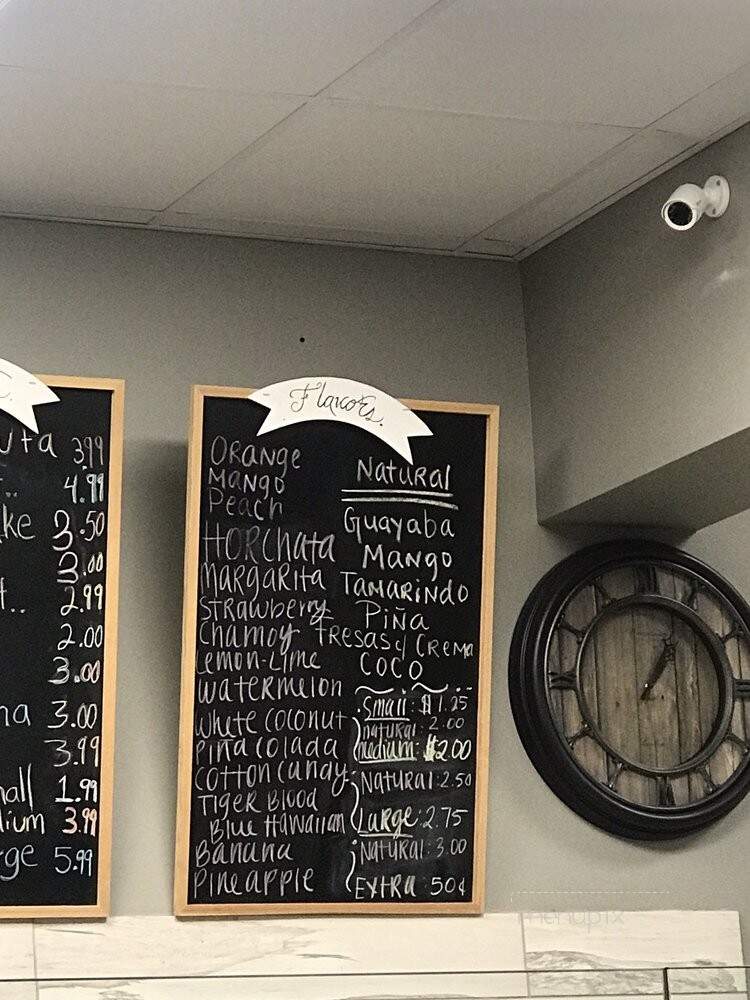 3.99
4.99
ke 3.50
3.00
2.99
2.00
3.00
na 3.00
3.99
1.99
3.99
5.99
Flavors.
ORANGE
MANGO
Peach
HORCHATA
MARGARITA
STRAWBERRY
CHAMOY
LEMON-LIME
WATERMELON
WHITE COCONUT
PIÑA COLADA
COTTON CANDY
TIGER BLOOD
BLUE HAWAIIAN
BANANA
PINEAPPLE
NATURAL
GUAYABA
MANGO
TAMARINDO
PIÑA
FRESAS y CREMA
COCO
Small: $1.25
natural: 2.00
medium: $2.00
NATURAL: 2.50
LARGE: 2.75
NATURAL: 3.00
EXTRA: 50¢
menupix